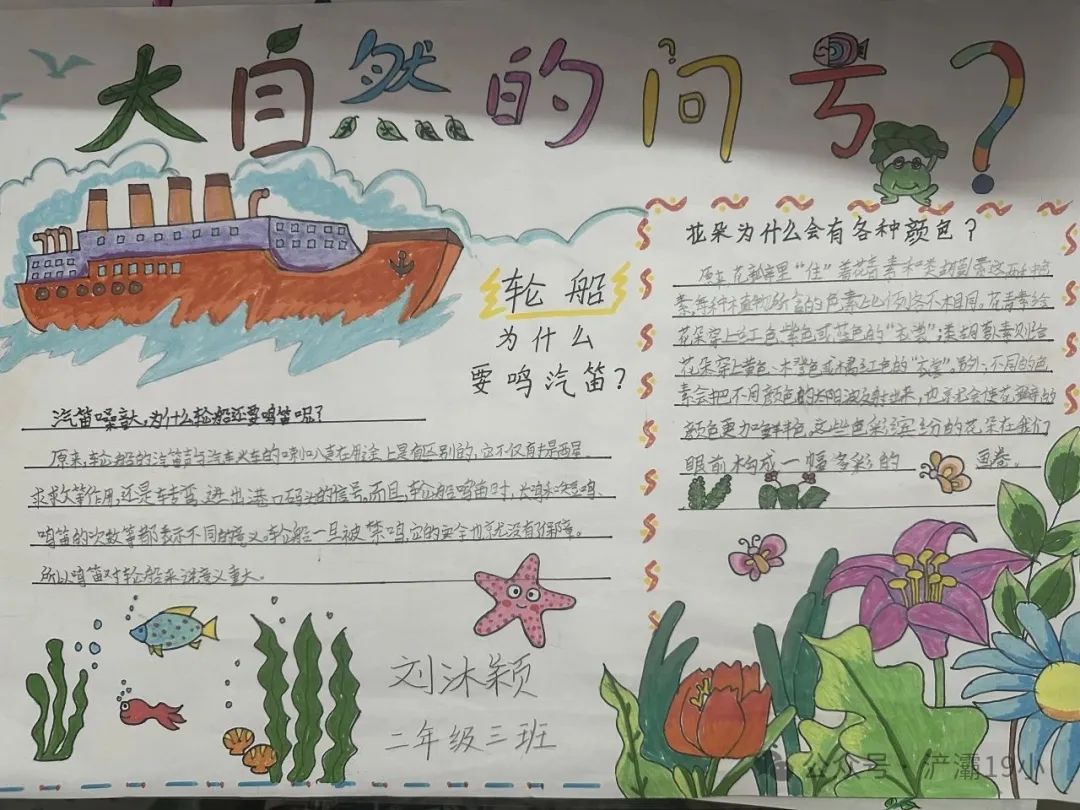 大自然的问号？
轮船
为什么
要鸣汽笛？
汽笛噪音大，为什么轮船还要鸣笛呢？
原来，轮船的汽笛声与汽车火车的喇叭声在用途上是有区别的，它不仅有提醒、
求救等作用，还是转弯、进出港口码头的信号，而且，轮船鸣笛时，长鸣
鸣笛的次数等都表示不同的意义。轮船一旦被禁鸣，它的安全也就没有保障。
所以鸣笛对轮船来讲意义重大。
花朵为什么会有各种颜色？
原来花瓣里“住”着花青素和类胡萝卜素这两种色
素，每种植物所含的色素比例各不相同。花青素给
花朵穿上红色、紫色或蓝色的“衣裳”；类胡萝卜素则给
花朵穿上黄色、橙色或橘红色的“衣裳”。另外，不同的色
素会把不同颜色的太阳波反射出来，也就会使花瓣的
颜色更加鲜艳。这些色彩缤纷的花朵在我们
眼前构成一幅多彩的画卷。
刘沐颖
二年级三班
公众号·浐灞19小